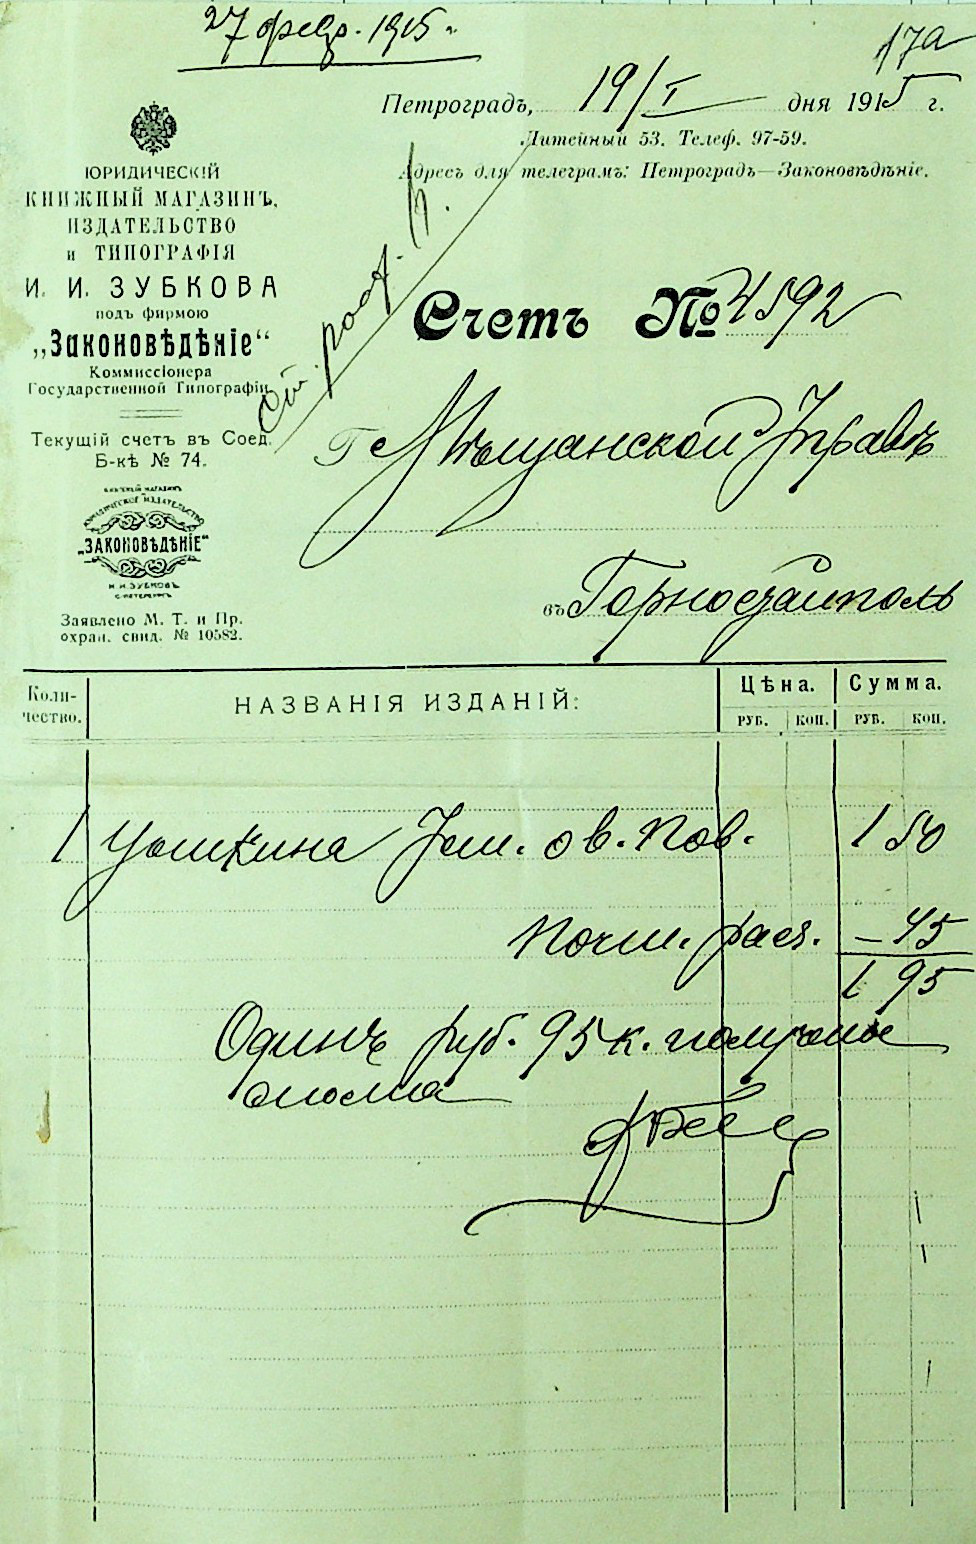 27 февр. 1915 г.
17а
Петроградъ, 19/I дня 1915 г.
Литейный 53. Телеф. 97-59.
Адресъ для телеграмъ: Петроградъ—Законовѣдѣніе.
ЮРИДИЧЕСКІЙ
КНИЖНЫЙ МАГАЗИНЪ,
ИЗДАТЕЛЬСТВО
и ТИПОГРАФІЯ
И. И. ЗУБКОВА
подъ фирмою
„Законовѣдѣніе“
Коммиссіонера
Государственной Типографіи
Текущій счетъ въ Соед.
Б-кѣ № 74.
КНИЖНЫЙ МАГАЗИНЪ
ЮРИДИЧЕСКОЕ ИЗДАТЕЛЬСТВО
„ЗАКОНОВѢДѢНІЕ“
И. И. ЗУБКОВЪ
С-ПЕТЕРБУРГЪ
Заявлено М. Т. и Пр.
охран. свид. № 10582.
Счетъ № 4592
Мѣщанской Управѣ
въ
Коли-
чество.
НАЗВАНІЯ ИЗДАНІЙ:
Цѣна.
Сумма.
РУБ. КОП. РУБ. КОП.
1 Уст. о в. пов. 1 50
Почт. расх. — 45
1 95
Одинъ руб. 95 к. получилъ
сполна